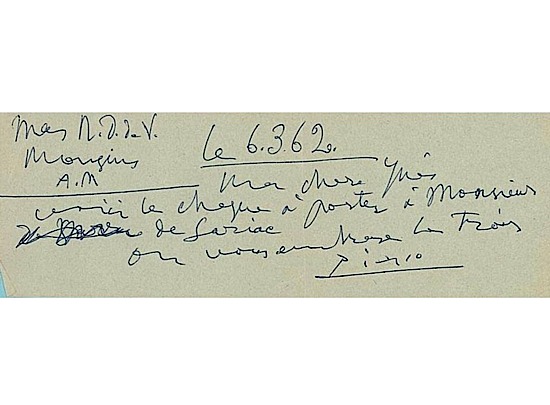 Mas N.D.d.V.
Mougins
A.M
Le 6.3.62.
Ma chere Ynès
voici le cheque à porter à Monsieur
de Sariac
on vous embrasse les Trois